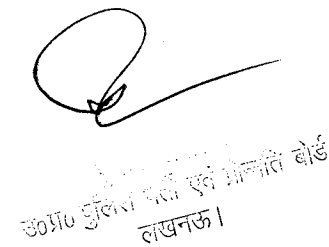 उ०प्र० पुलिस भर्ती एवं प्रोन्नति बोर्ड
लखनऊ।